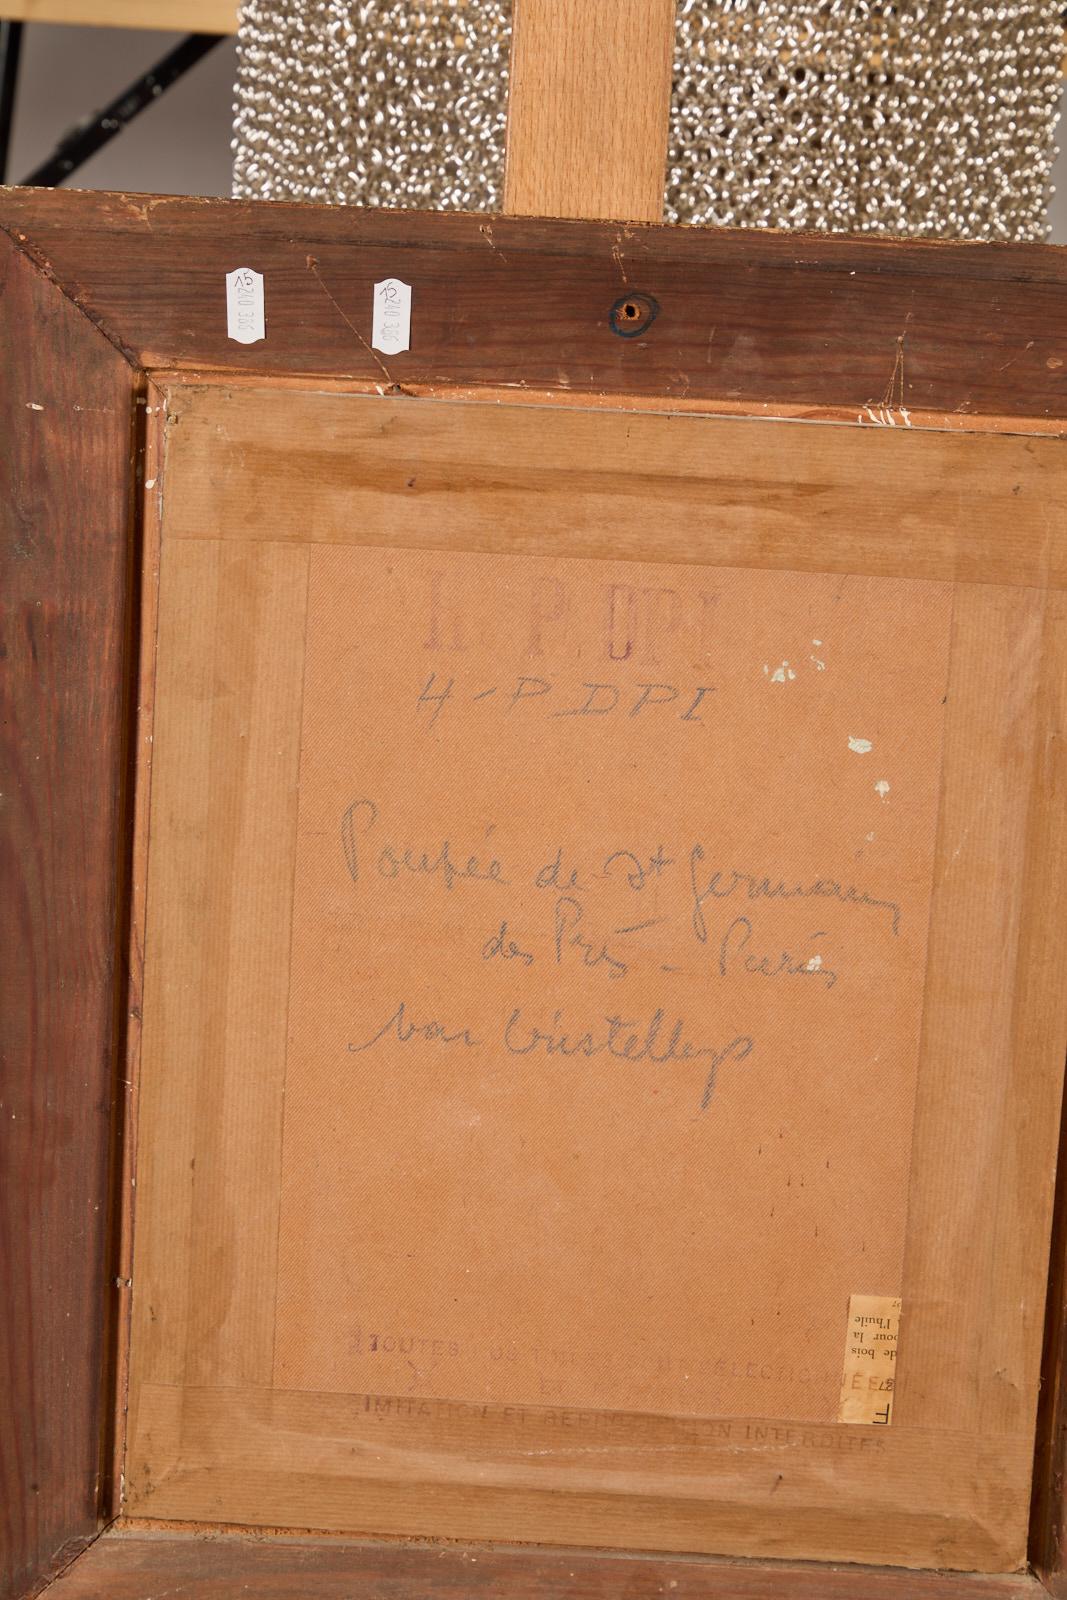 15
240 386
15
240 386
H P DPI
H-P DPI
Poupée de St Germain
des Prés - Paris
van
TOUTES
SÉLECTIONNÉES
ET
IMITATION ET REPRODUCTION INTERDITES
F
de bois
pour la
l'huile